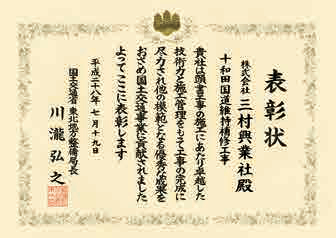 表彰状
十和田国道維持補修工事
株式会社 三村興業社殿
貴社は頭書工事の施工にあたり卓越した
技術力と施工管理をもって工事の完成に
尽力され他の模範となる優秀な成果を
おさめ国土交通事業に貢献されました
よってここに表彰します
平成二十八年七月十九日
国土交通省 東北地方整備局長
川瀧弘之